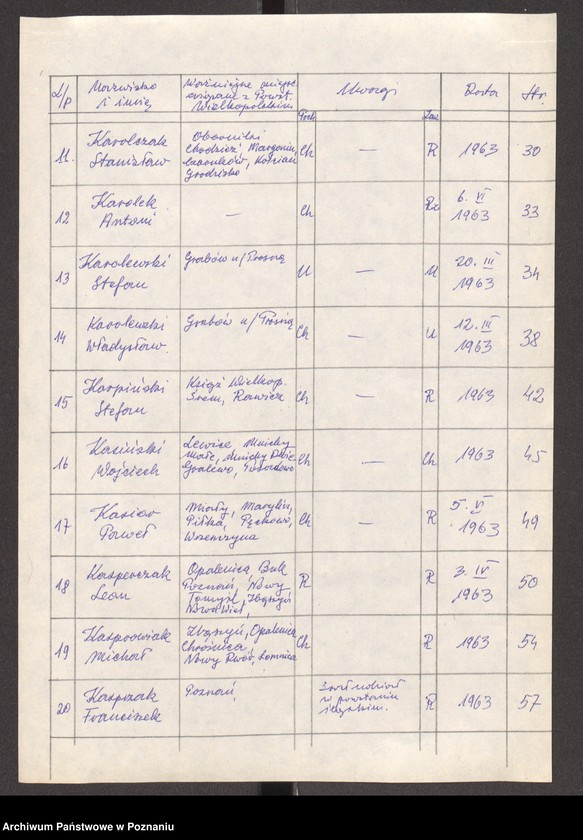 L/p Nazwisko i imię Ważniejsze miejsc. związane z Powst. Wielkopolskim Poch. Uwagi Zaw. Data Str.
11. Karolczak Stanisław Oborniki Chodzież, Margonin, Czarnków, Kościan Grodzisko Ch — R 1963 30
12 Karolek Antoni — Ch Rz 6. VI 1963 33
13 Karolewski Stefan Grabów n/Prosną U — U 20. III 1963 34
14 Karolewski Władysław. Grabów n/Prosną Ch — U 12. III 1963 38
15 Karpiński Stefan Książ Wielkop. Śrem, Rawicz Ch — R 1963 42
16 Kasiński Wojciech Lewice Mnichy Małe, Mnichy Gralewo, Ch — Ch 1963 45
17 Kasior Paweł Miały, Marylin, Piłka, Pęckowo, Wrzeszczyna Ch — R 5. VI 1963 49
18 Kasperczak Leon Opalenica Buk Poznań, Nowy Tomyśl, Zbąszyń Nowa Wieś, R R 3. IV 1963 50
19 Kasprowiak Michał Zbąszyń, Opalenica Chrośnica, Nowy Dwór, Łomnica Ch R 1963 54
20 Kasprzak Franciszek Poznań, Brał udział w powstaniu śląskim. R 1963 57
Archiwum Państwowe w Poznaniu